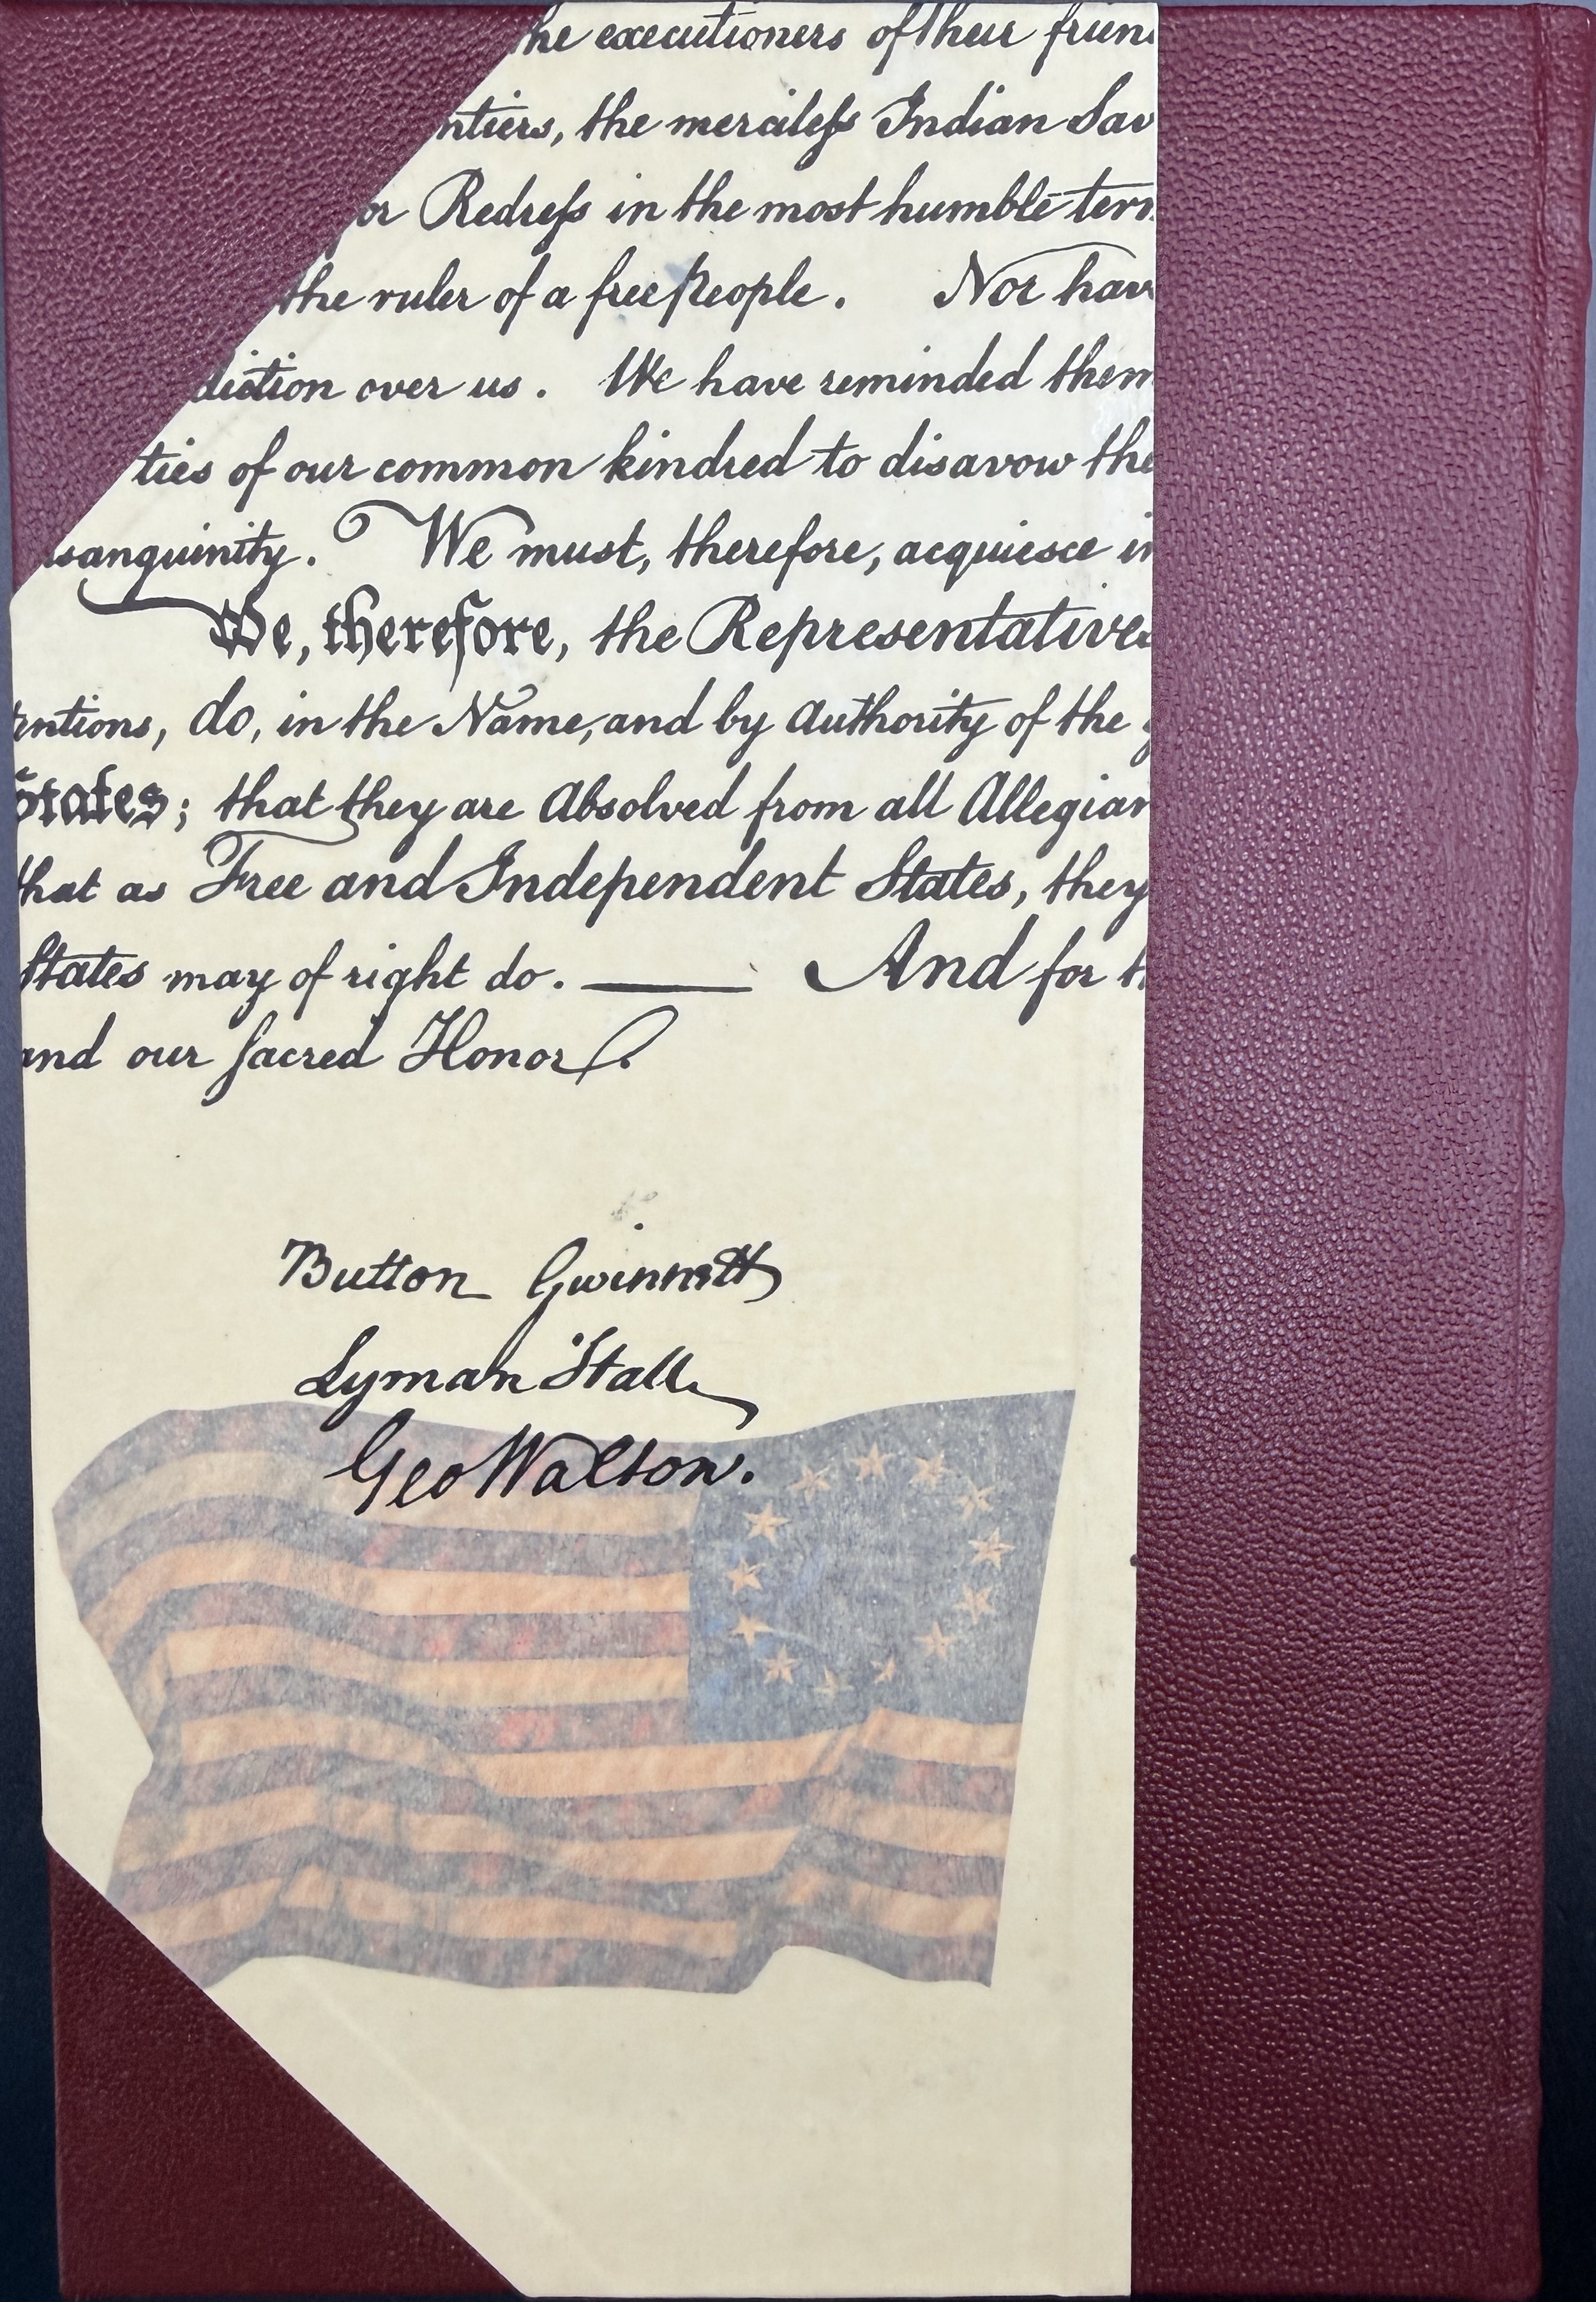 he executioners of their frien
ntiers, the mercileſs Indian Sav
or Redreſs in the most humble ter
the ruler of a free people. Nor hav
diction over us. We have reminded them
ties of our common kindred to disavow the
sanguinity. We must, therefore, acquiesce in
We, therefore, the Representatives
entions, do, in the Name, and by Authority of the
States; that they are Absolved from all Allegian
that as Free and Independent States, they
States may of right do. — And for t
and our sacred Honor.
Button Gwinnett
Lyman Hall
Geo Walton.